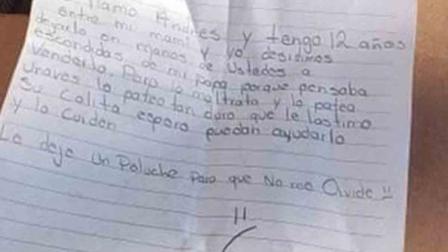 llamo Andres y tengo 12 años
entre mi mami y yo desidimos
dejarlo en manos de Ustedes a
escondidas de mi papa porque pensaba
venderlo. Pero lo maltrata y lo patea
unaves lo pateo tan duro que le lastimo
su colita espero puedan ayudarlo
y lo cuiden
Le deje un Peluche para que No me Olvide !!